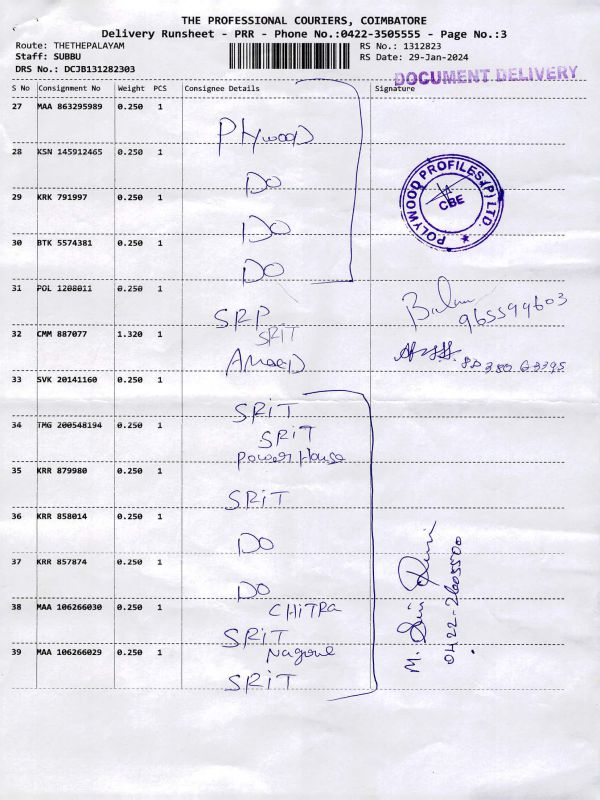 THE PROFESSIONAL COURIERS, COIMBATORE
Delivery Runsheet - PRR - Phone No.:0422-3505555 - Page No.:3
Route: THETHEPALAYAM RS No.: 1312823
Staff: SUBBU RS Date: 29-Jan-2024
DRS No.: DCJB131282303
DOCUMENT DELIVERY
S No Consignment No Weight PCS Consignee Details Signature
27 MAA 863295989 0.250 1
Plywood
28 KSN 145912465 0.250 1
DO
29 KRK 791997 0.250 1
DO
30 BTK 5574381 0.250 1
DO
POLYWOOD PROFILES (P) LTD.
CBE
31 POL 1208011 0.250 1
SRP
Balan
965594603
32 CMM 887077 1.320 1
SRIT
33 SVK 20141160 0.250 1
SRIT
34 TMG 200548194 0.250 1
SRIT
Power House
35 KRR 879980 0.250 1
SRIT
36 KRR 858014 0.250 1
DO
37 KRR 857874 0.250 1
DO
38 MAA 106266030 0.250 1
CHITRA
SRIT
39 MAA 106266029 0.250 1
SRIT
M.
0422-2605500